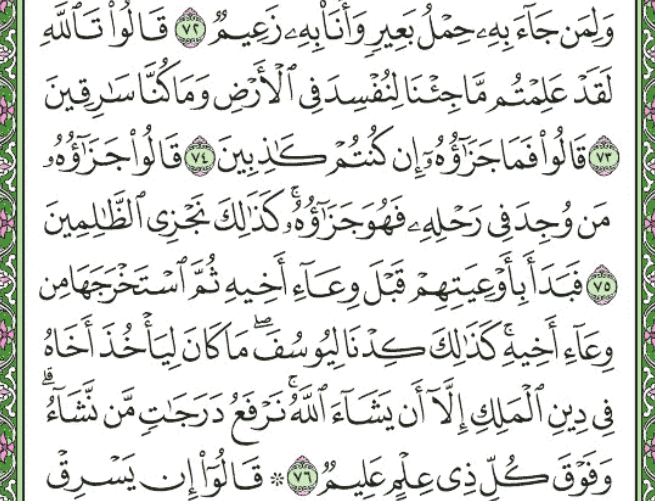 وَلِمَن جَآءَ بِهِۦ حِمْلُ بَعِيرٍ وَأَنَا۠ بِهِۦ زَعِيمٌ ٧٢ قَالُوا۟ تَٱللَّهِ
لَقَدْ عَلِمْتُم مَّا جِئْنَا لِنُفْسِدَ فِى ٱلْأَرْضِ وَمَا كُنَّا سَـٰرِقِينَ
٧٣ قَالُوا۟ فَمَا جَزَٰٓؤُهُۥٓ إِن كُنتُمْ كَـٰذِبِينَ ٧٤ قَالُوا۟ جَزَٰٓؤُهُۥ
مَن وُجِدَ فِى رَحْلِهِۦ فَهُوَ جَزَٰٓؤُهُۥ ۚ كَذَٰلِكَ نَجْزِى ٱلظَّـٰلِمِينَ
٧٥ فَبَدَأَ بِأَوْعِيَتِهِمْ قَبْلَ وِعَآءِ أَخِيهِ ثُمَّ ٱسْتَخْرَجَهَا مِن
وِعَآءِ أَخِيهِ ۚ كَذَٰلِكَ كِدْنَا لِيُوسُفَ ۖ مَا كَانَ لِيَأْخُذَ أَخَاهُ
فِى دِينِ ٱلْمَلِكِ إِلَّآ أَن يَشَآءَ ٱللَّهُ ۚ نَرْفَعُ دَرَجَـٰتٍ مَّن نَّشَآءُ ۗ
وَفَوْقَ كُلِّ ذِى عِلْمٍ عَلِيمٌ ٧٦ ۞ قَالُوٓا۟ إِن يَسْرِقْ